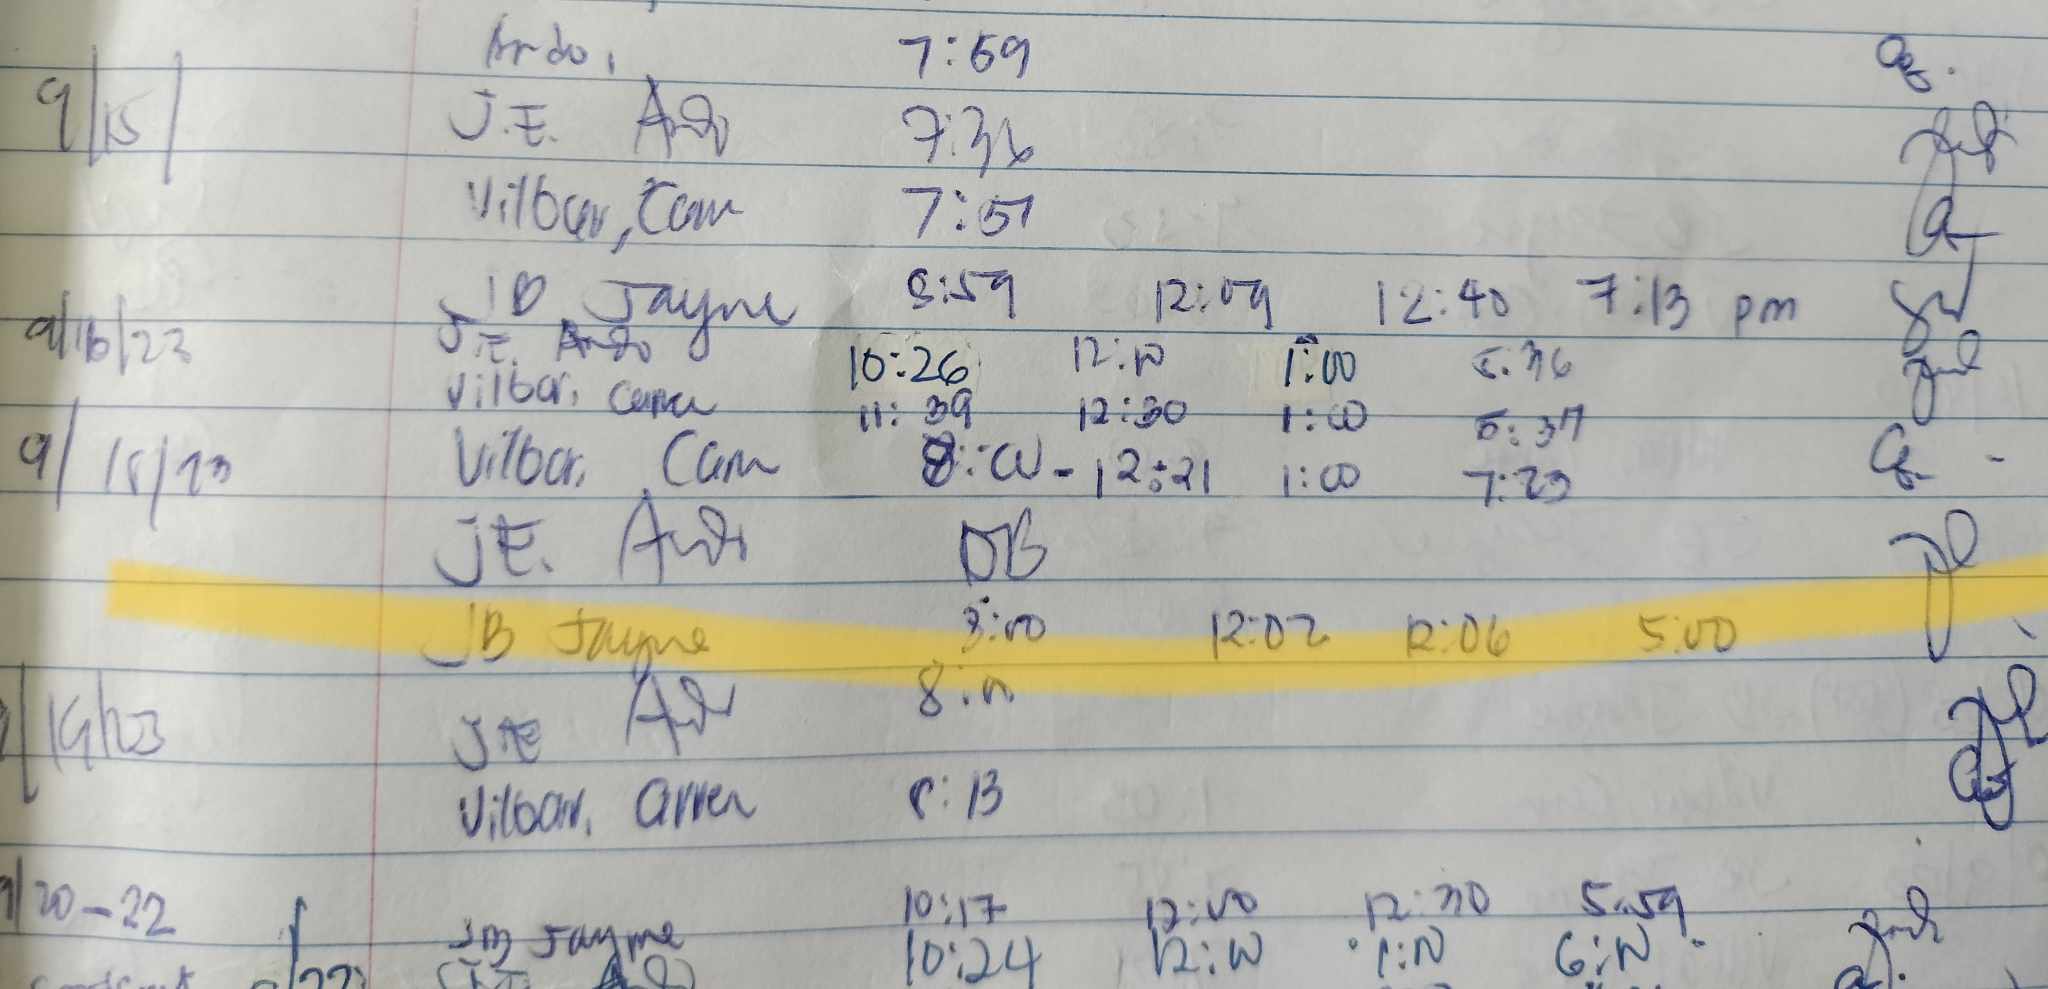 Ando, 7:59
9/15/ J.E. Ando 7:36
Vilbar, Cam 7:57
JB Jayme 8:59 12:09 12:40 7:13 pm
9/16/23 J.E. Ando 10:26 12:00 1:00 5:36
Vilbar, 11:39 12:30 1:00 5:37
9/18/23 Vilbar, Cam 8:00 - 12:21 1:00 7:23
J.E. Ando OB
JB Jayme 8:00 12:02 12:06 5:00
9/19/23 J.E. Ando 8:00
Vilbar, 8:13
9/20-22
JB Jayme 10:17 12:00 12:30 5:59
J.E. Ando 10:24 12:00 1:00 6:00